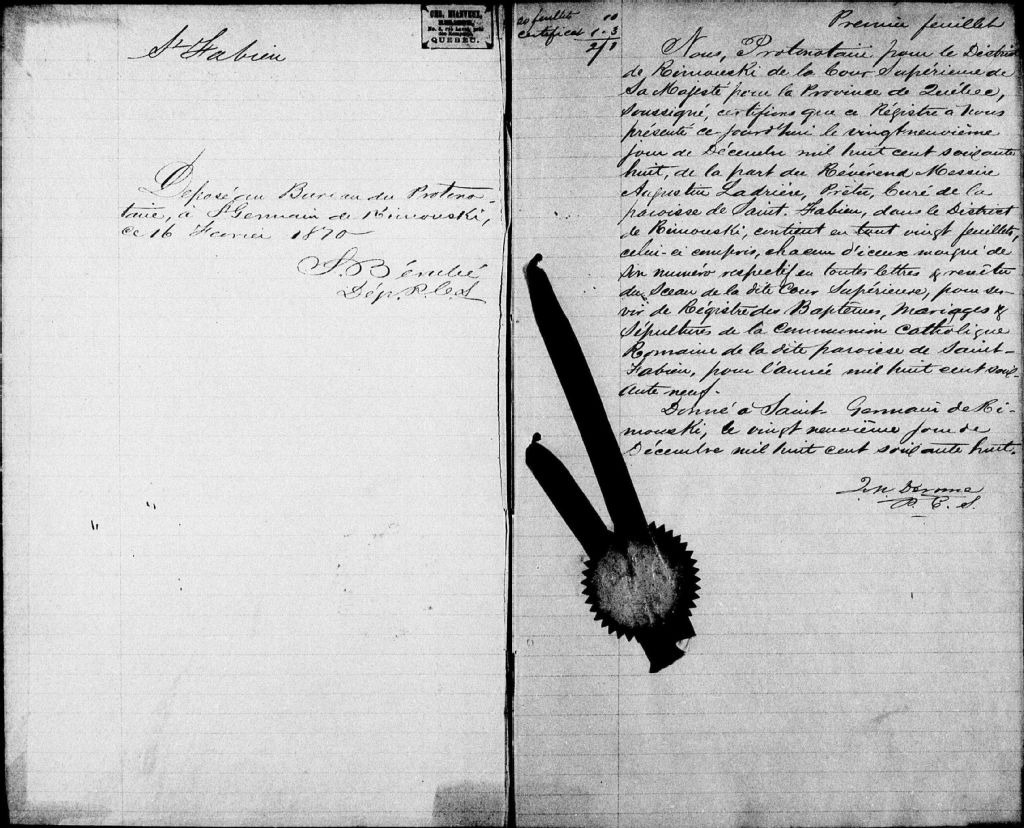 St Fabien
Déposé au Bureau du Protono-
taire, à St Germain de Rimouski,
ce 16 Février 1870
Dép. P. C. S
QUÉBEC.
20 feuillets 10
certificat 1-3
2/1
Premier feuillet
Nous, Protonotaire pour le District
de Rimouski de la Cour Supérieure de
Sa Majesté pour la Province de Québec,
soussigné, certifions que ce Régistre à nous
présenté ce jourd'hui le vingtneuvième
jour de Décembre mil huit cent soixante
huit, de la part du Révérend Messire
Augustin Ladrière, Prêtre, Curé de la
paroisse de Saint Fabien, dans le District
de Rimouski, contient en tout vingt feuillets,
celui-ci compris, chacun d'iceux marqué de
son numéro respectif en toutes lettres & revêtu
du Sceau de la dite Cour Supérieure, pour ser-
vir de Régistre des Baptêmes, Mariages &
Sépultures de la Communion Catholique
Romaine de la dite paroisse de Saint-
Fabien, pour l'année mil huit cent soix-
ante neuf.
Donné à Saint Germain de Ri-
mouski, le vingt neuvième jour de
Décembre mil huit cent soixante huit.
P. C. S.